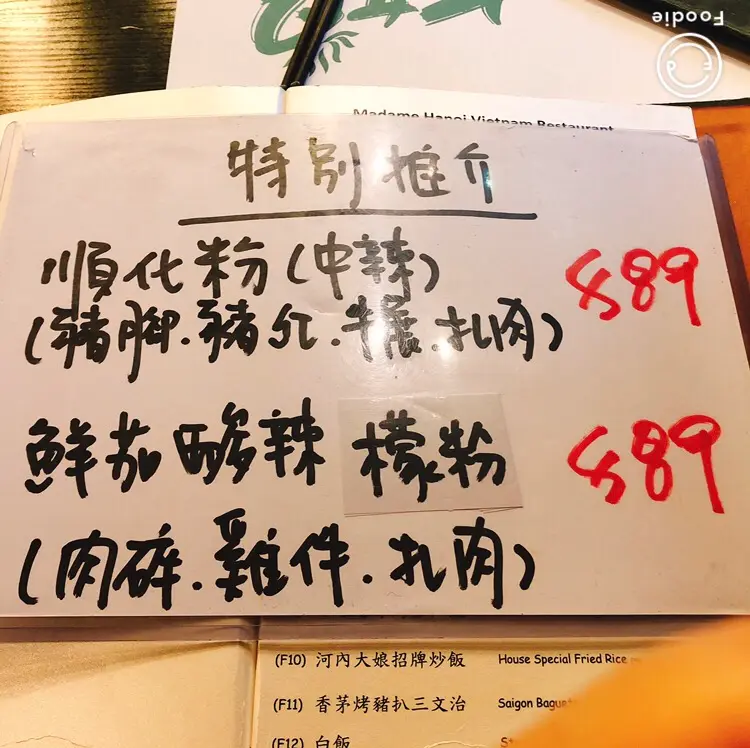 Foodie
Madame Hanoi Vietnam Restaurant
特別推介
順化粉(中辣) $89
(豬腳.豬红.牛展.扎肉)
鮮茄酸辣檬粉 $89
(肉碎.雞件.扎肉)
(F10) 河內大娘招牌炒飯 House Special Fried Rice
(F11) 香茅烤豬扒三文治 Saigon
(F12) 白飯